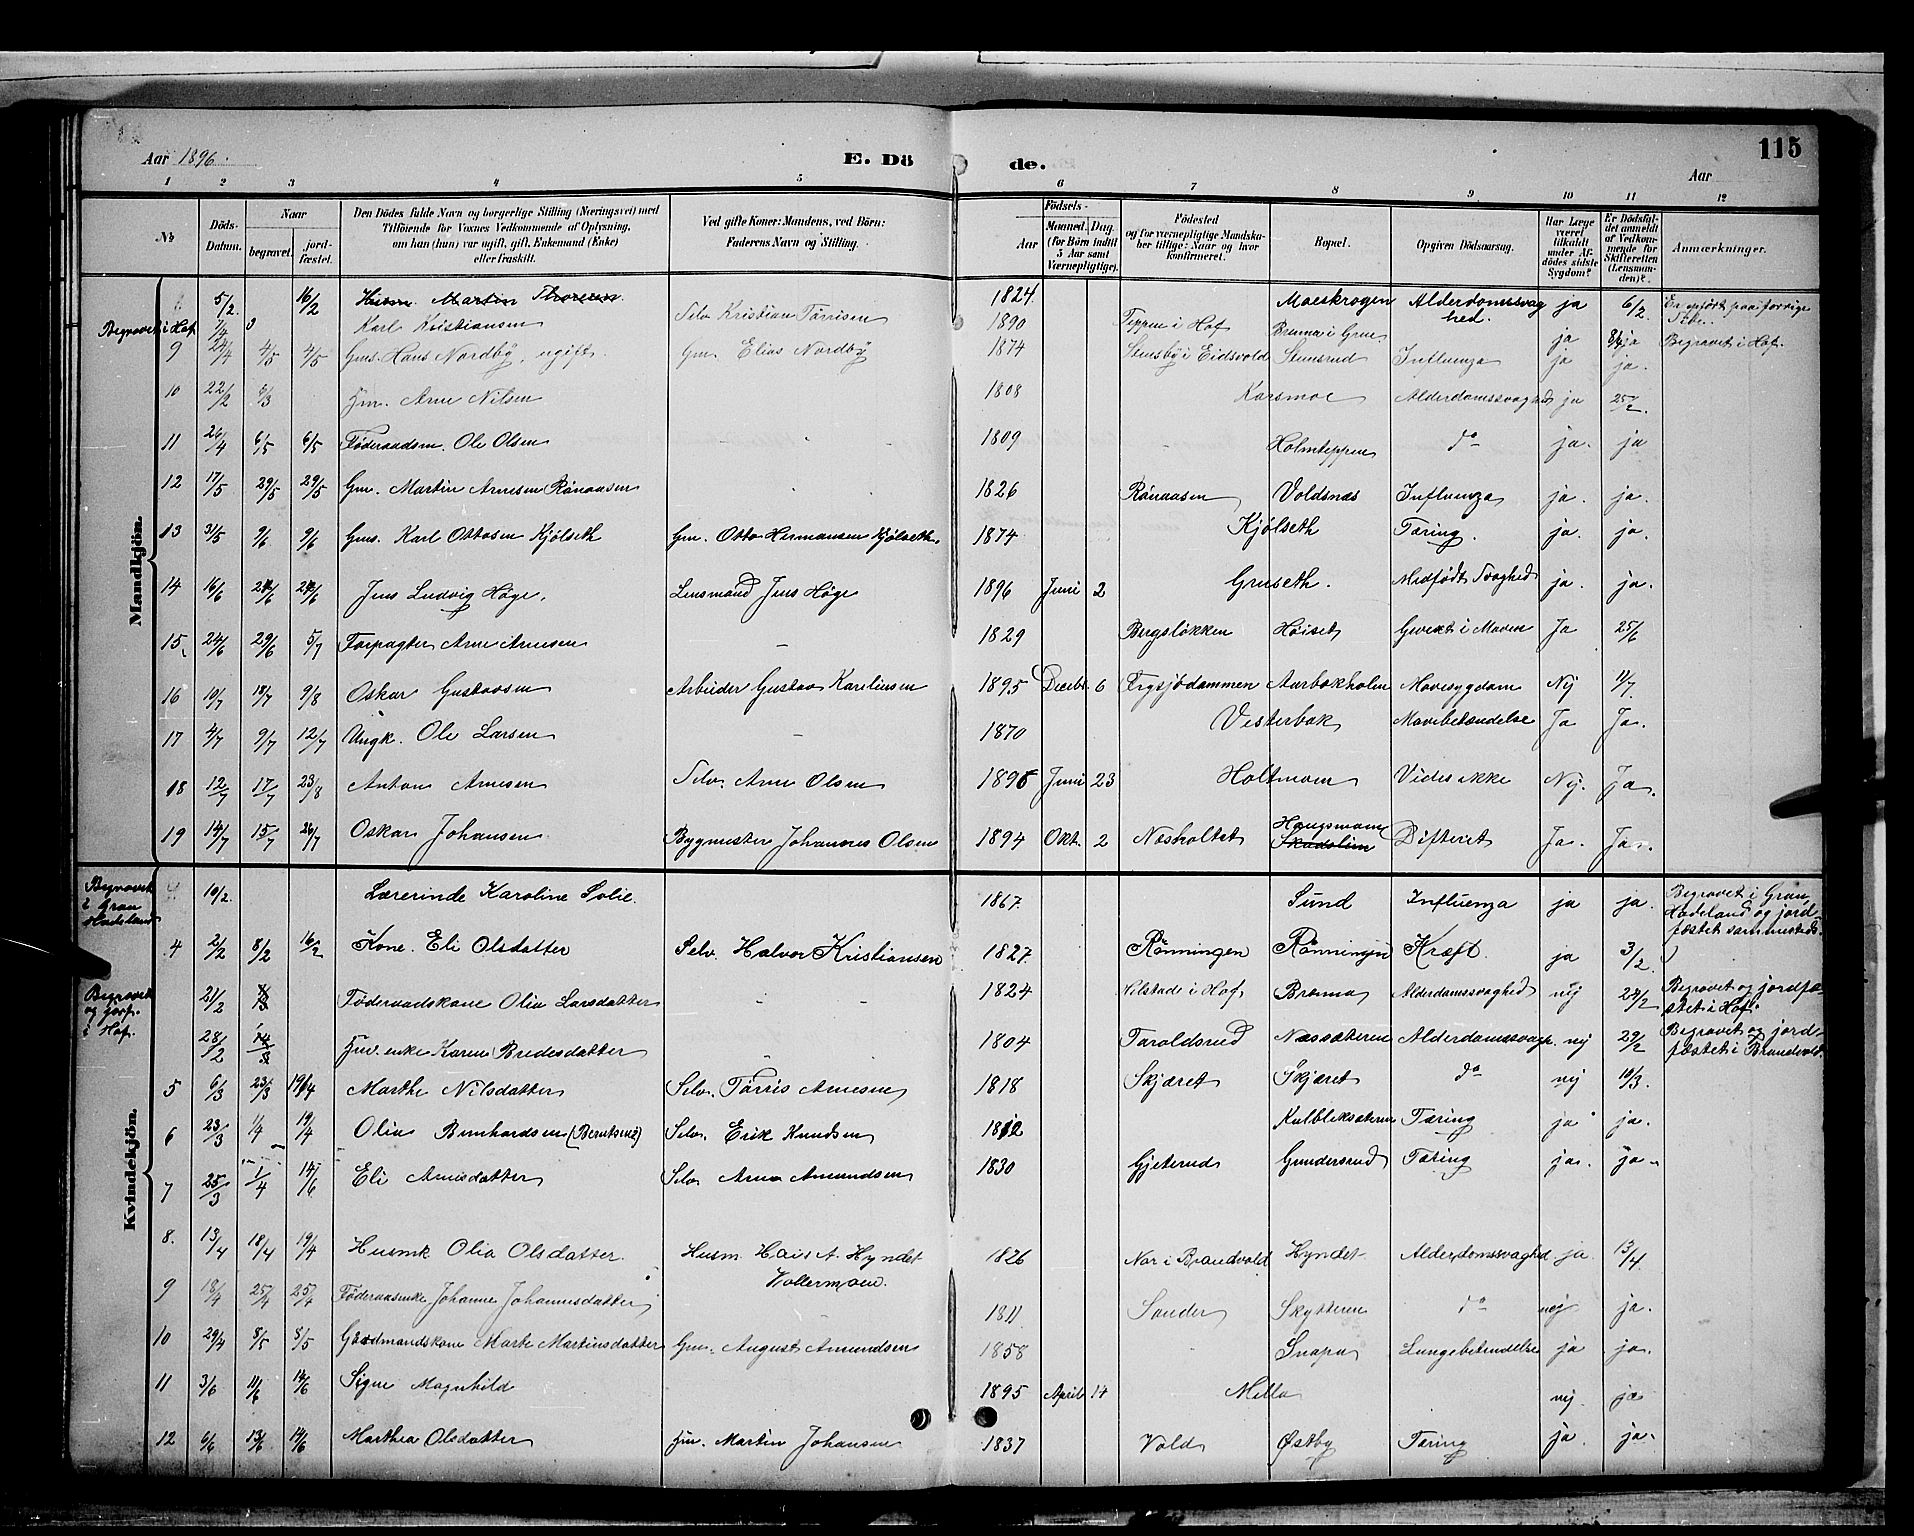 115
Aar 1896.
E. Dö
de.
Aar
1 2 3 4 5 6 7 8 9 10 11 12
No
Döds-Datum.
Naar
begravet.
jord-fæstet.
Den Dödes fulde Navn og borgerlige Stilling (Næringsvei) med
Tilföiende for Voxnes Vedkommende af Oplysning,
om han (hun) var ugift, gift, Enkemand (Enke)
eller fraskilt.
Ved gifte Koner: Mandens, ved Börn:
Faderens Navn og Stilling.
Födsels-
Aar
Maaned. Dag.
(for Börn indtil
5 Aar samt
Værnepligtige).
Födested
og for værnepligtige Mandska-
ber tillige: Naar og hvor
konfirmeret.
Bopæl.
Opgiven Dödsaarsag.
Har Læge
været
tilkaldt
under Af-
dödes sidste
Sygdom?
Er Dödsfal-
det anmeldt
af Vedkom-
mende for
Skifteretten
(Lensman-
den)?
Anmærkninger.
Mandkjön.
5/2. 16/2 Husm. Martin Thoresen. 1824. Moeskrogen Alderdomssvaghed. ja 6/2. Er opført paa forrige Side.
Begravet i Hof. 7/4 Karl Kristiansen Selv. Kristian Tørrisen 1890 Teppen i Hof Brenna i Grue ja ja Begravet i Hof.
9 24/4 4/5 4/5 Gms. Hans Nordby, ugift. Gm. Elias Nordby 1874 Stensby i Eidsvold Stensrud Influenza ja ja.
10 22/2 6/3 Fm. Arne Nilsen 1808 Karsmoe Alderdomssvaghed ja 25/2.
11 26/4 6/5 6/5 Föderaadsm. Ole Olsen 1809 Holmteppen do ja. ja
12 17/5 29/5 29/5 Gm. Martin Arnesen Rönaasen 1826 Rönaasen Voldsnæs Influenza ja. ja.
13 31/5 9/6 9/6 Gms. Karl Ottosen Kjölseth Gm. Otto Hermansen Kjölseth. 1874 Kjölseth Tæring. ja. ja.
14 16/6 Jens Ludvig Höge. Lensmand Jens Höge 1896 Juni 2 Gruseth. Medfödt Svaghed ja. ja.
15. 24/6 29/6 5/7 Forpagter Arne Arnesen - 1829 Bergslökken Höiset Gvext i Maven Ja 25/6
16 10/7 18/7 9/8 Oskar Gustavsen Arbeider Gustav Karelinsen 1895 Decbr. 6 Frysjödammen Aarbokholm Mavesygdom Nej 11/7.
17 4/7 9/7 12/7 Ungk. Ole Larsen - 1870 Vesterbak Mavebetændelse Ja Ja.
18 12/7 17/7 23/8 Anton Arnesen Selv. Arne Olsen 1895 Juni 23 Holtmoen Vides ikke Nej. Ja.
19 14/7 15/7 26/7 Oskar Johansen Bygmester Johannes Olsen 1894 Okt. 2 Næsholtet Haugsmoen Skadslien Difterit Ja. Ja.
Kvindekjön.
Begravet i Gran Hadeland 10/2. Lærerinde Karoline Solie. 1867. Sund Influenza ja ja. Begravet i Gran, Hadeland og jordfæstet sammesteds.
4 2/2 8/2 16/2 Kone. Eli Olsdatter Selv. Halvor Kristiansen 1827. Rönningen Rönningen Kræft. ja 3/2.
Begravet og jordf. i Hof. 21/2 Föderaadskone Olia Larsdatter - - 1824 Nilstade i Hof Brenna Alderdomssvaghed nej 24/2 Begravet og jordfæstet i Hof.
28/2 Fm. enke Karen Bredesdatter 1804 Taroldsrud Næssæteren Alderdomssvagh. nej 29/2 Begravet og jordfæstet i Brandvold.
5 6/3 23/3 19/4 Marthe Nilsdatter Selv. Törris Arnesen 1818 Skjæret Skjæret do nej 10/3.
6 23/3 1/4 19/4 Olia Bernhardsen (Berntsen?) Selv. Erik Knudsen 1812 Kulbleksæteren Tæring ja ja.
7 25/3 1/4 14/6 Eli Arnesdatter Selv. Arne Amundsen 1830 Gjeterud Gundersrud Tæring ja. ja
8. 13/4 18/4 19/4 Husmk Olia Olsdatter. Husm. Hans A. Hyndet Vollermoen. 1826 Nor i Brandvold Hyndet Alderdomssvaghed ja 13/4.
9 18/4 25/4 25/4 Föderaasenke Johanne Johannesdatter - 1811 Sander Skytteren do nej ja.
10 29/4 8/5 8/5 Gaardmandskone Marte Martinsdatter Gm. August Amundsen 1858 Snapa Lungebetendelse ja ja.
11 3/6 11/6 14/6 Signe Magnhild 1895 April 14 Mella nej. ja
12 6/6 13/6 14/6 Marthea Olsdatter Fm. Martin Johansen 1837 Vold Østby Tæring ja. ja.